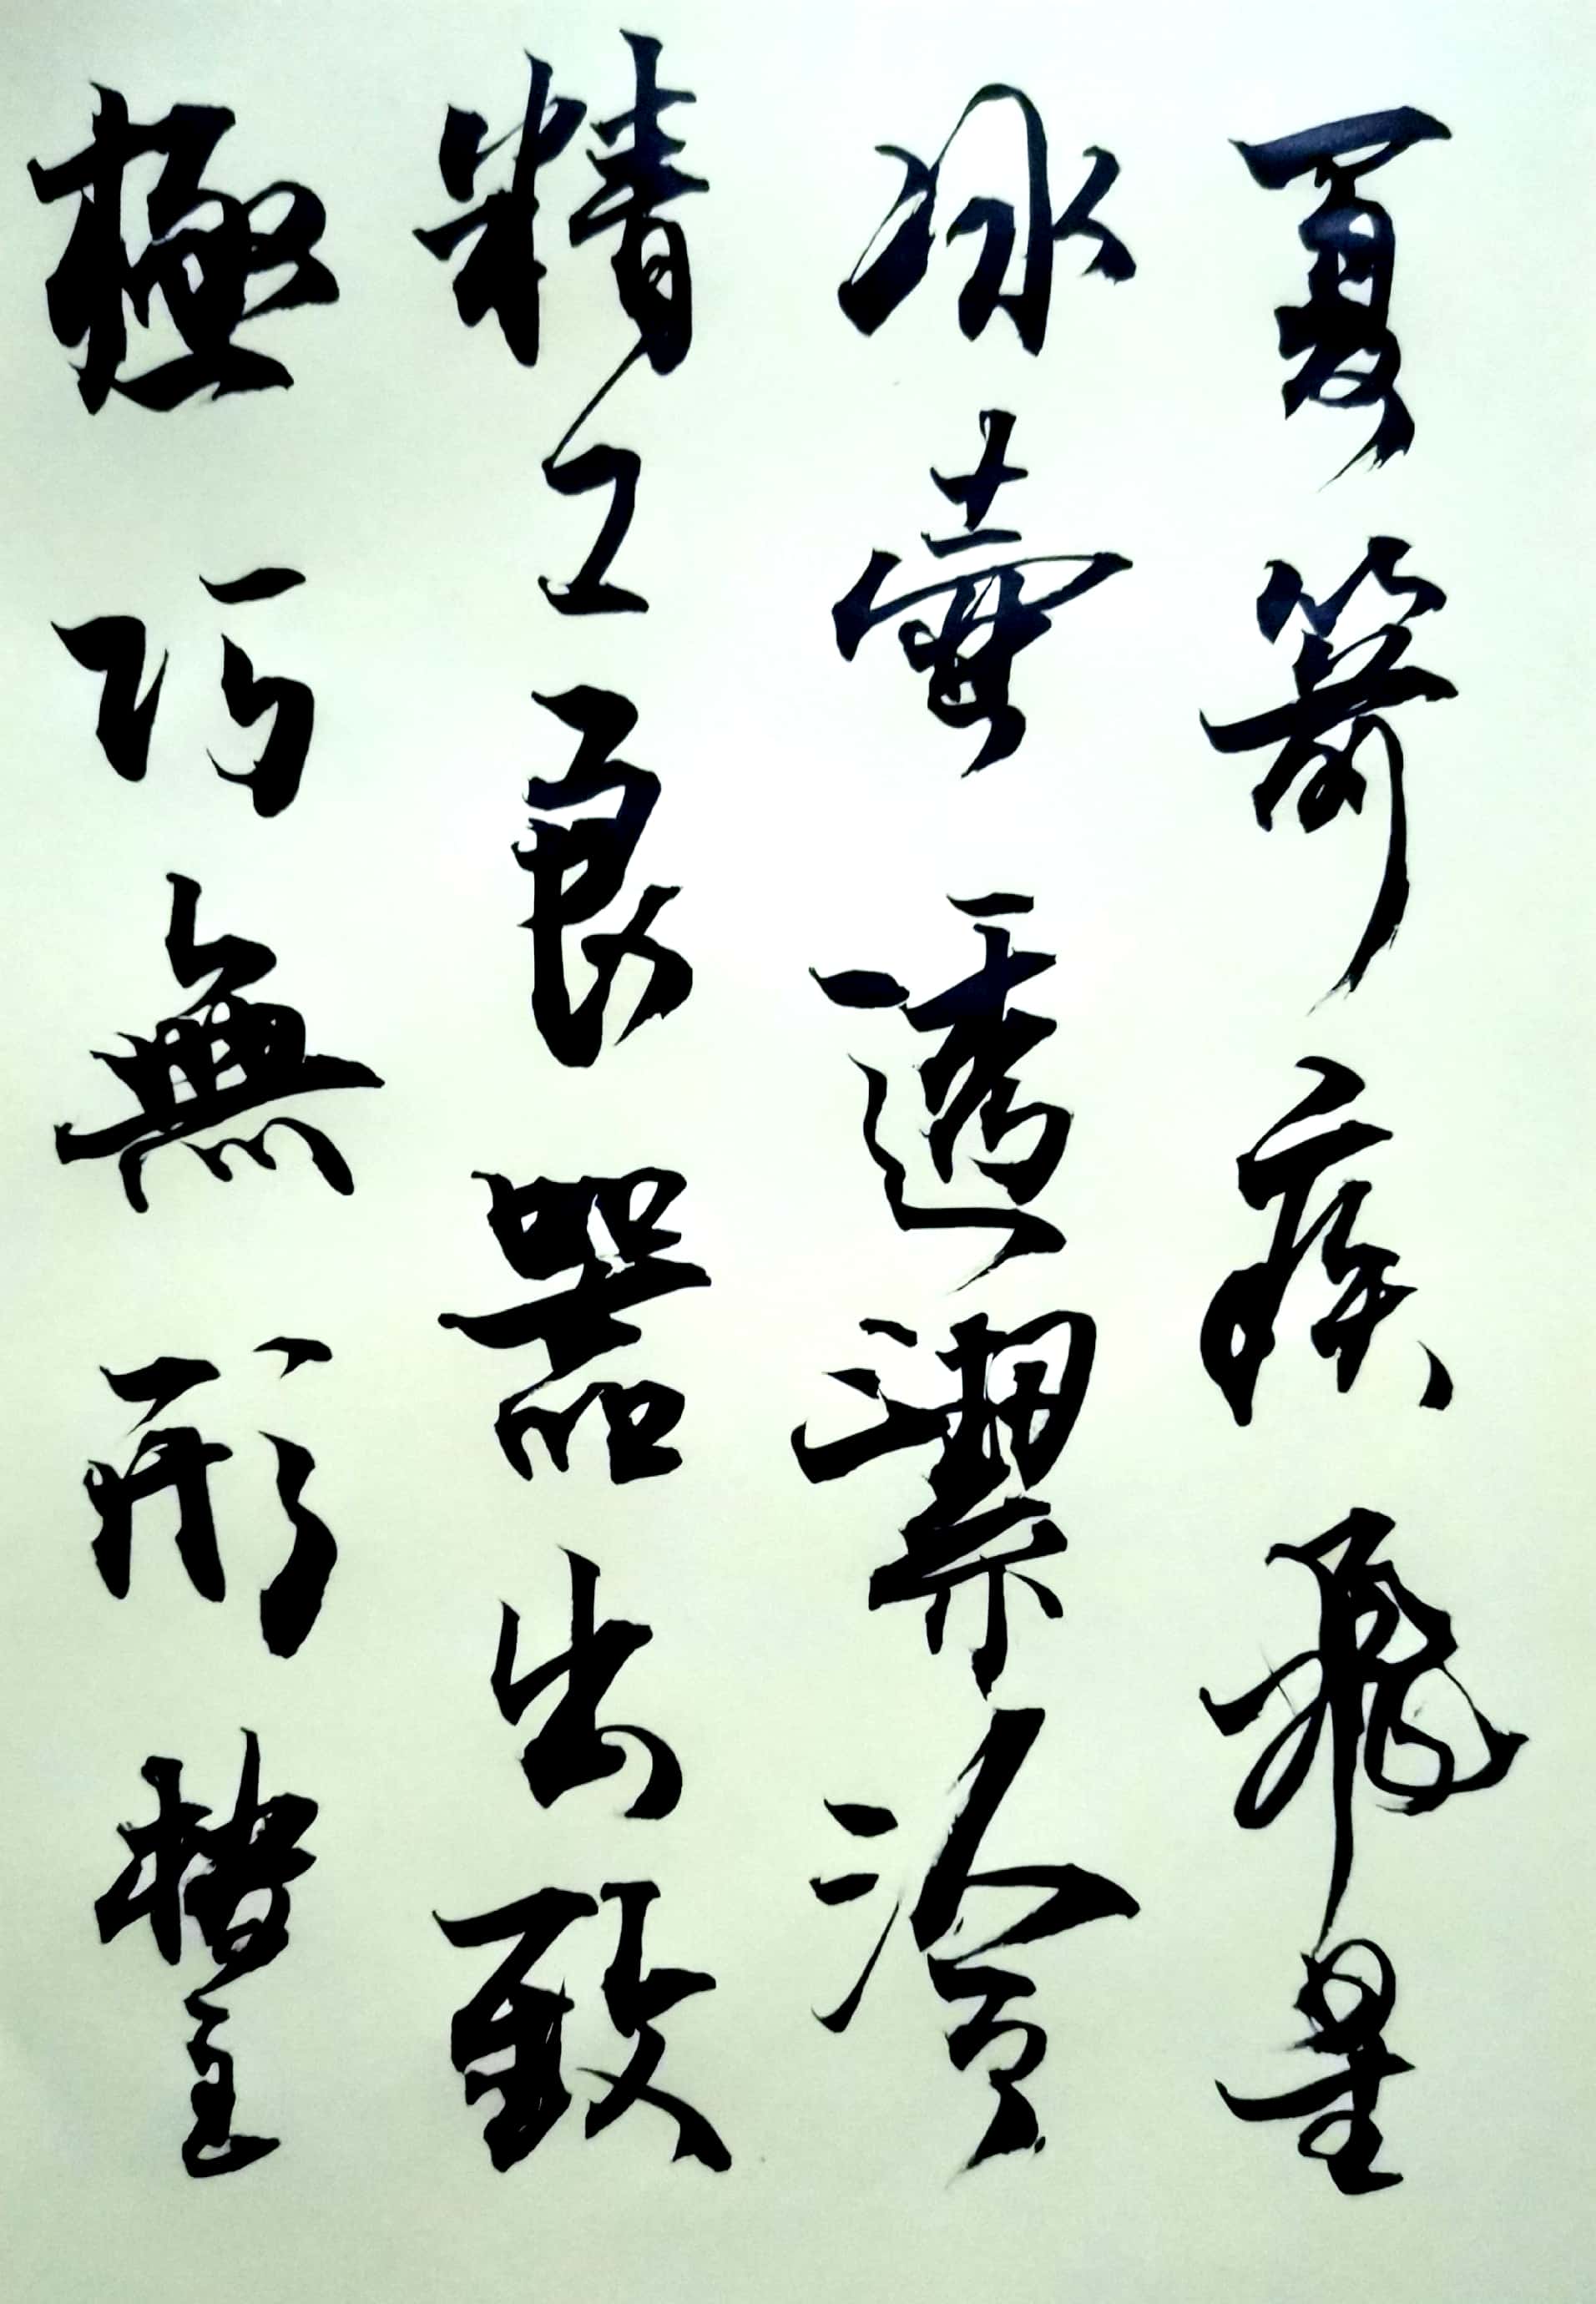 夏箭疾飛星
冰壺透潔冷
精工良器出致
極巧無形整